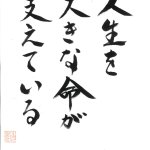 人生を
大きな命が
支えている